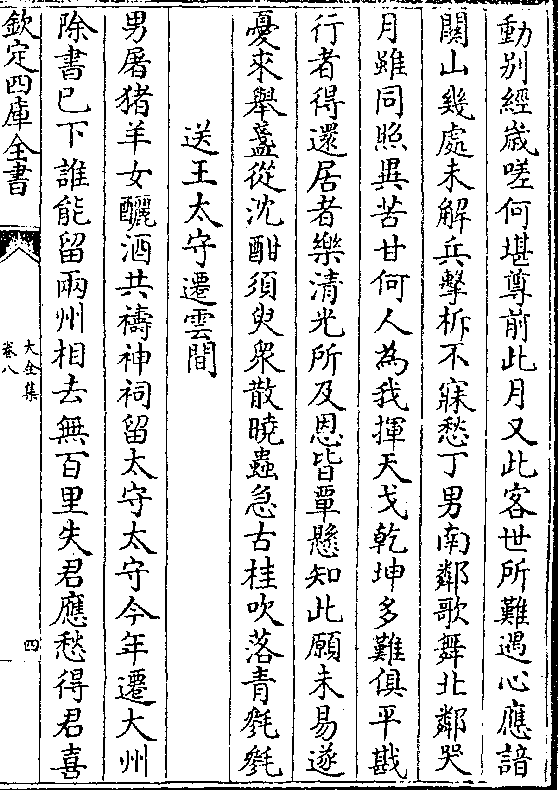 動别經歲嗟何堪尊前此月又此客世所難遇心應諳
關山幾處未解兵擊柝不寐愁丁男南鄰歌舞北鄰哭
月雖同照異苦甘何人為我揮天戈乾坤多難俱平戡
行者得還居者樂清光所及恩皆覃懸知此願未易遂
憂來舉盞從沈酣須臾衆散曉蟲急古桂吹落青毿毿
送王太守遷雲間
男屠猪羊女釃酒共禱神祠留太守太守今年遷大州
除書已下誰能留兩州相去無百里失君應愁得君喜
欽定四庫全書
大全集
卷八
四